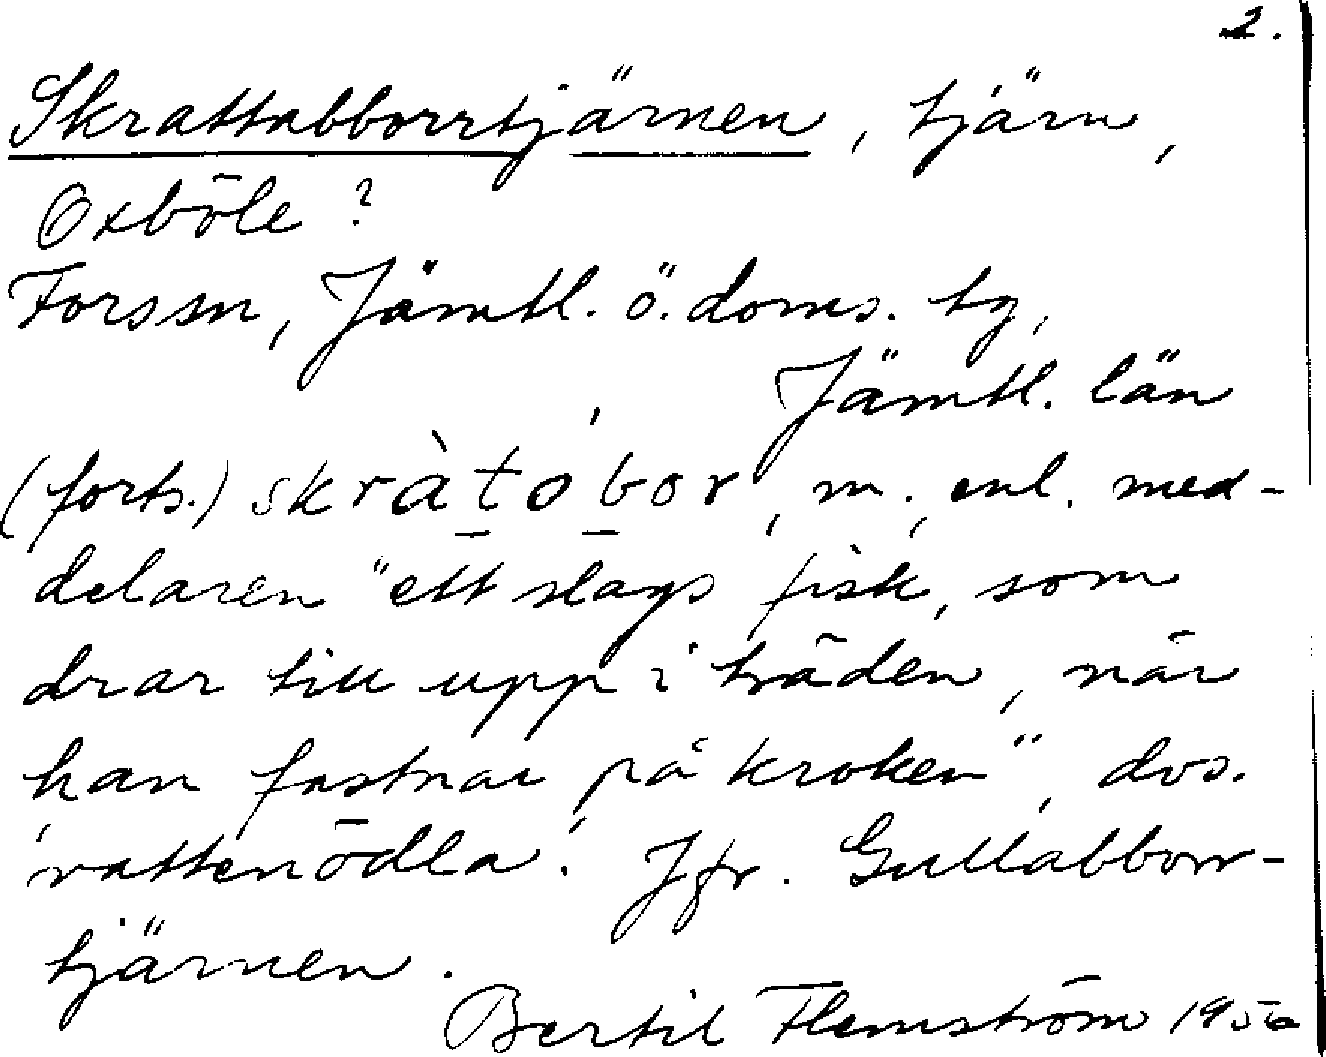 2.
Skrattabborrtjärnen, tjärn,
Oxböle?
Forssn, Jämtl. ö. doms. tg,
Jämtl. län
(forts.) skràtobor, m., enl. med-
delaren "ett slags fisk, som
drar till upp i träden, när
han fastnar på kroken", dvs.
'vattenödla'. Jfr. Gullabborr-
tjärnen.
Bertil Flemström 1956